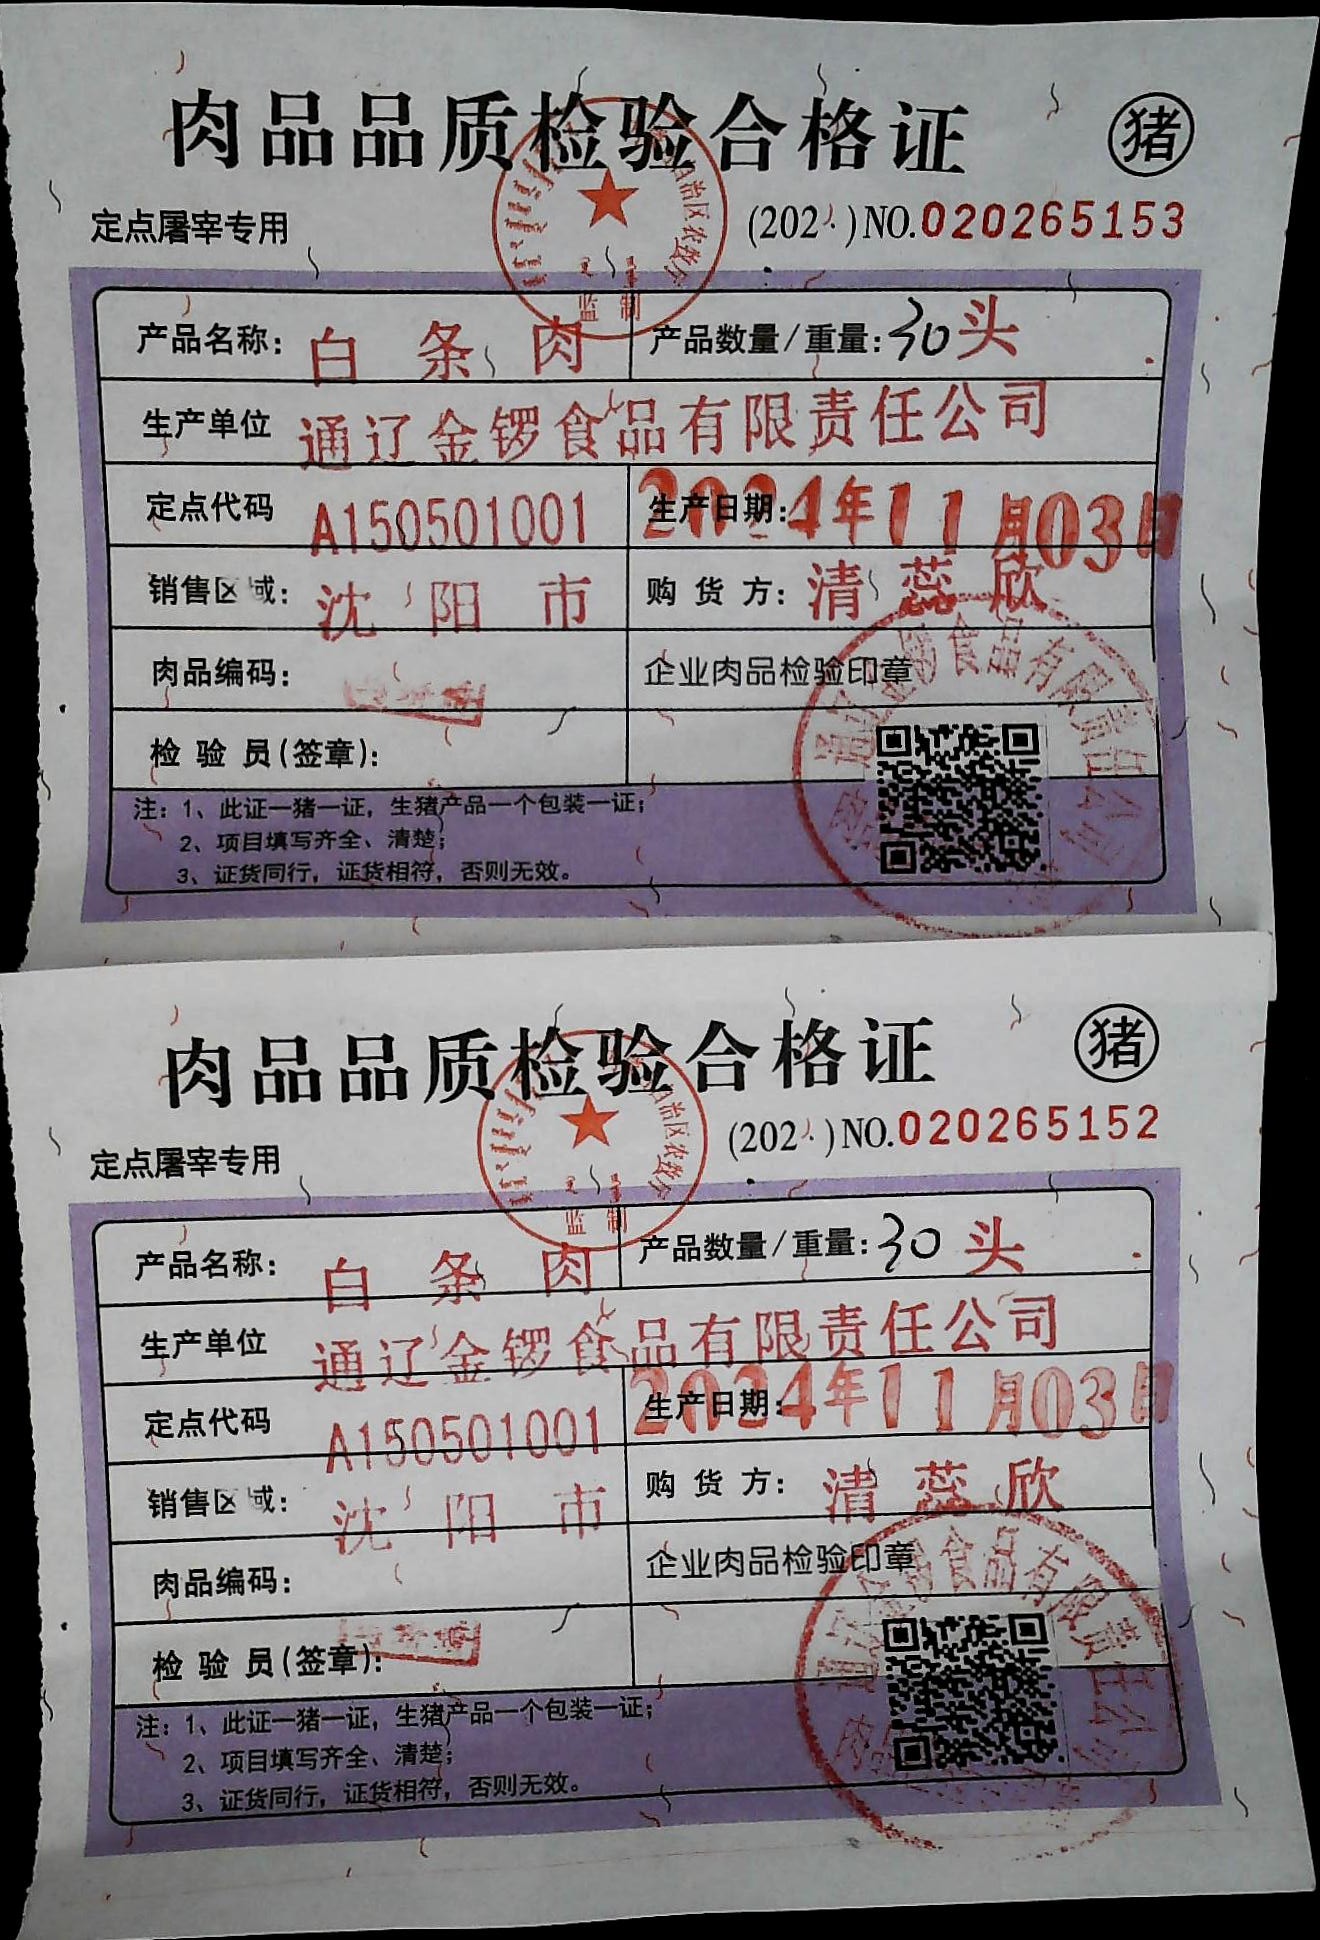 肉品品质检验合格证
猪
定点屠宰专用
(202 ) NO.020265153
监制
产品名称： 白条肉
产品数量/重量： 30头
生产单位 通辽金锣食品有限责任公司
定点代码 A150501001
生产日期： 2024年11月03日
销售区域： 沈阳市
购货方： 清蕊欣
肉品编码：
企业肉品检验印章
检验员(签章)：
注：1、此证一猪一证，生猪产品一个包装一证；
2、项目填写齐全、清楚；
3、证货同行，证货相符，否则无效。
肉品品质检验合格证
猪
定点屠宰专用
(202 ) NO.020265152
监制
产品名称： 白条肉
产品数量/重量： 30头
生产单位 通辽金锣食品有限责任公司
定点代码 A150501001
生产日期： 2024年11月03日
销售区域： 沈阳市
购货方： 清蕊欣
肉品编码：
企业肉品检验印章
检验员(签章)：
注：1、此证一猪一证，生猪产品一个包装一证；
2、项目填写齐全、清楚；
3、证货同行，证货相符，否则无效。